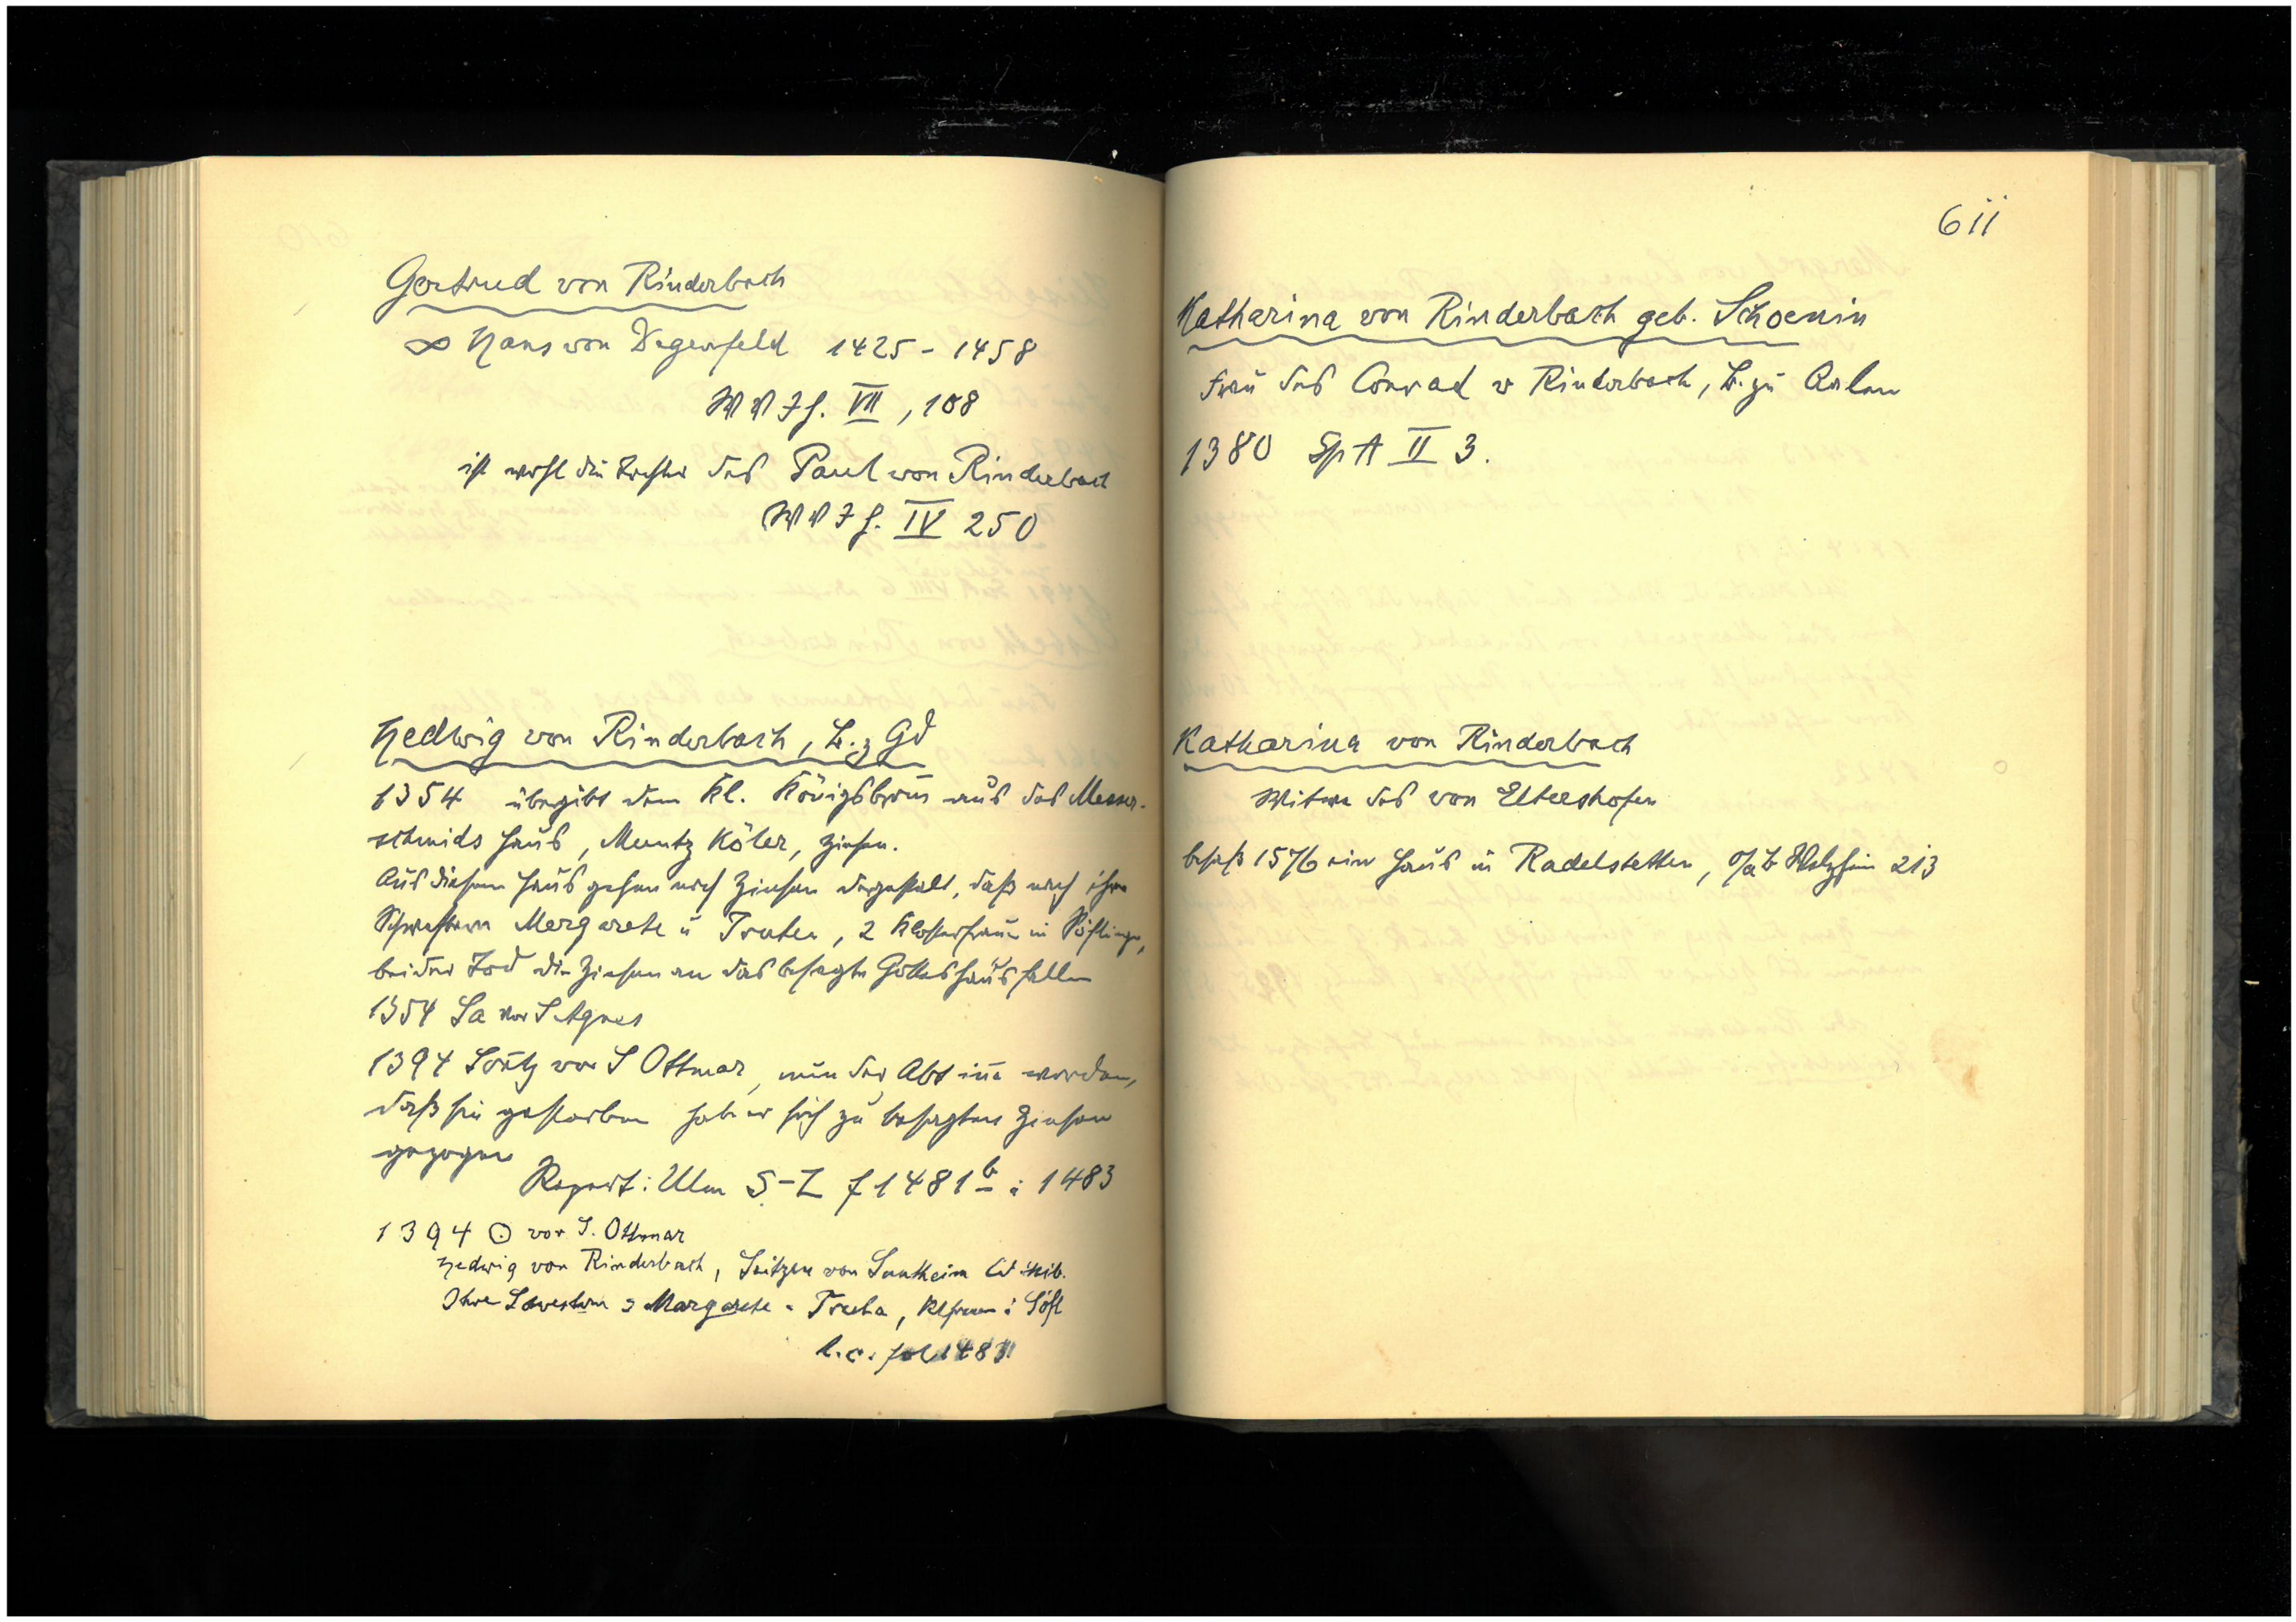 Gertrud von Rinderbach
∞ Hans von Degenfeld 1425 - 1458
W V J h. VII, 108
ist wohl die Tochter des Paul von Rinderbach
W V J h. IV 250
Hedwig von Rinderbach, B. z Gd
1354 übergibt dem Kl. Königsbron̄ aus des Messer-
schmids Haus, Muntz Köler, Zinsen.
Aus diesem Haus gehen noch Zinsen dergestalt, daß nach ihrer
Schwestern Mergarete u Truten, 2 Klosterfrauen in Söflingen,
beider Tod die Zinsen an das besagte Gotteshaus fallen
1354 Sa vor S Agnes
1394 Soñtg vor S Ottmar, nun der Abt iñe worden,
daß sie gestorben hab er sich zu besagten Zinsen
gezogen
Repert: Ulm S-Z f 1481 b : 1483
1394 ⊙ vor S. Ottmar
Hedwig von Rinderbach, Seitzen von Suntheim Wib.
Ihre Swestern Margarete Truta, Klfrauen i Söfl
l.c. fol 1483
611
Katharina von Rinderbach geb. Schoenin
Frau des Conrad v Rinderbach, B. zu Aalen
1380 Sp A II 3.
Katharina von Rinderbach
Witwe des von Eltershofen
besaß 1576 ein Haus in Radelstetten, OAB Welzheim 213